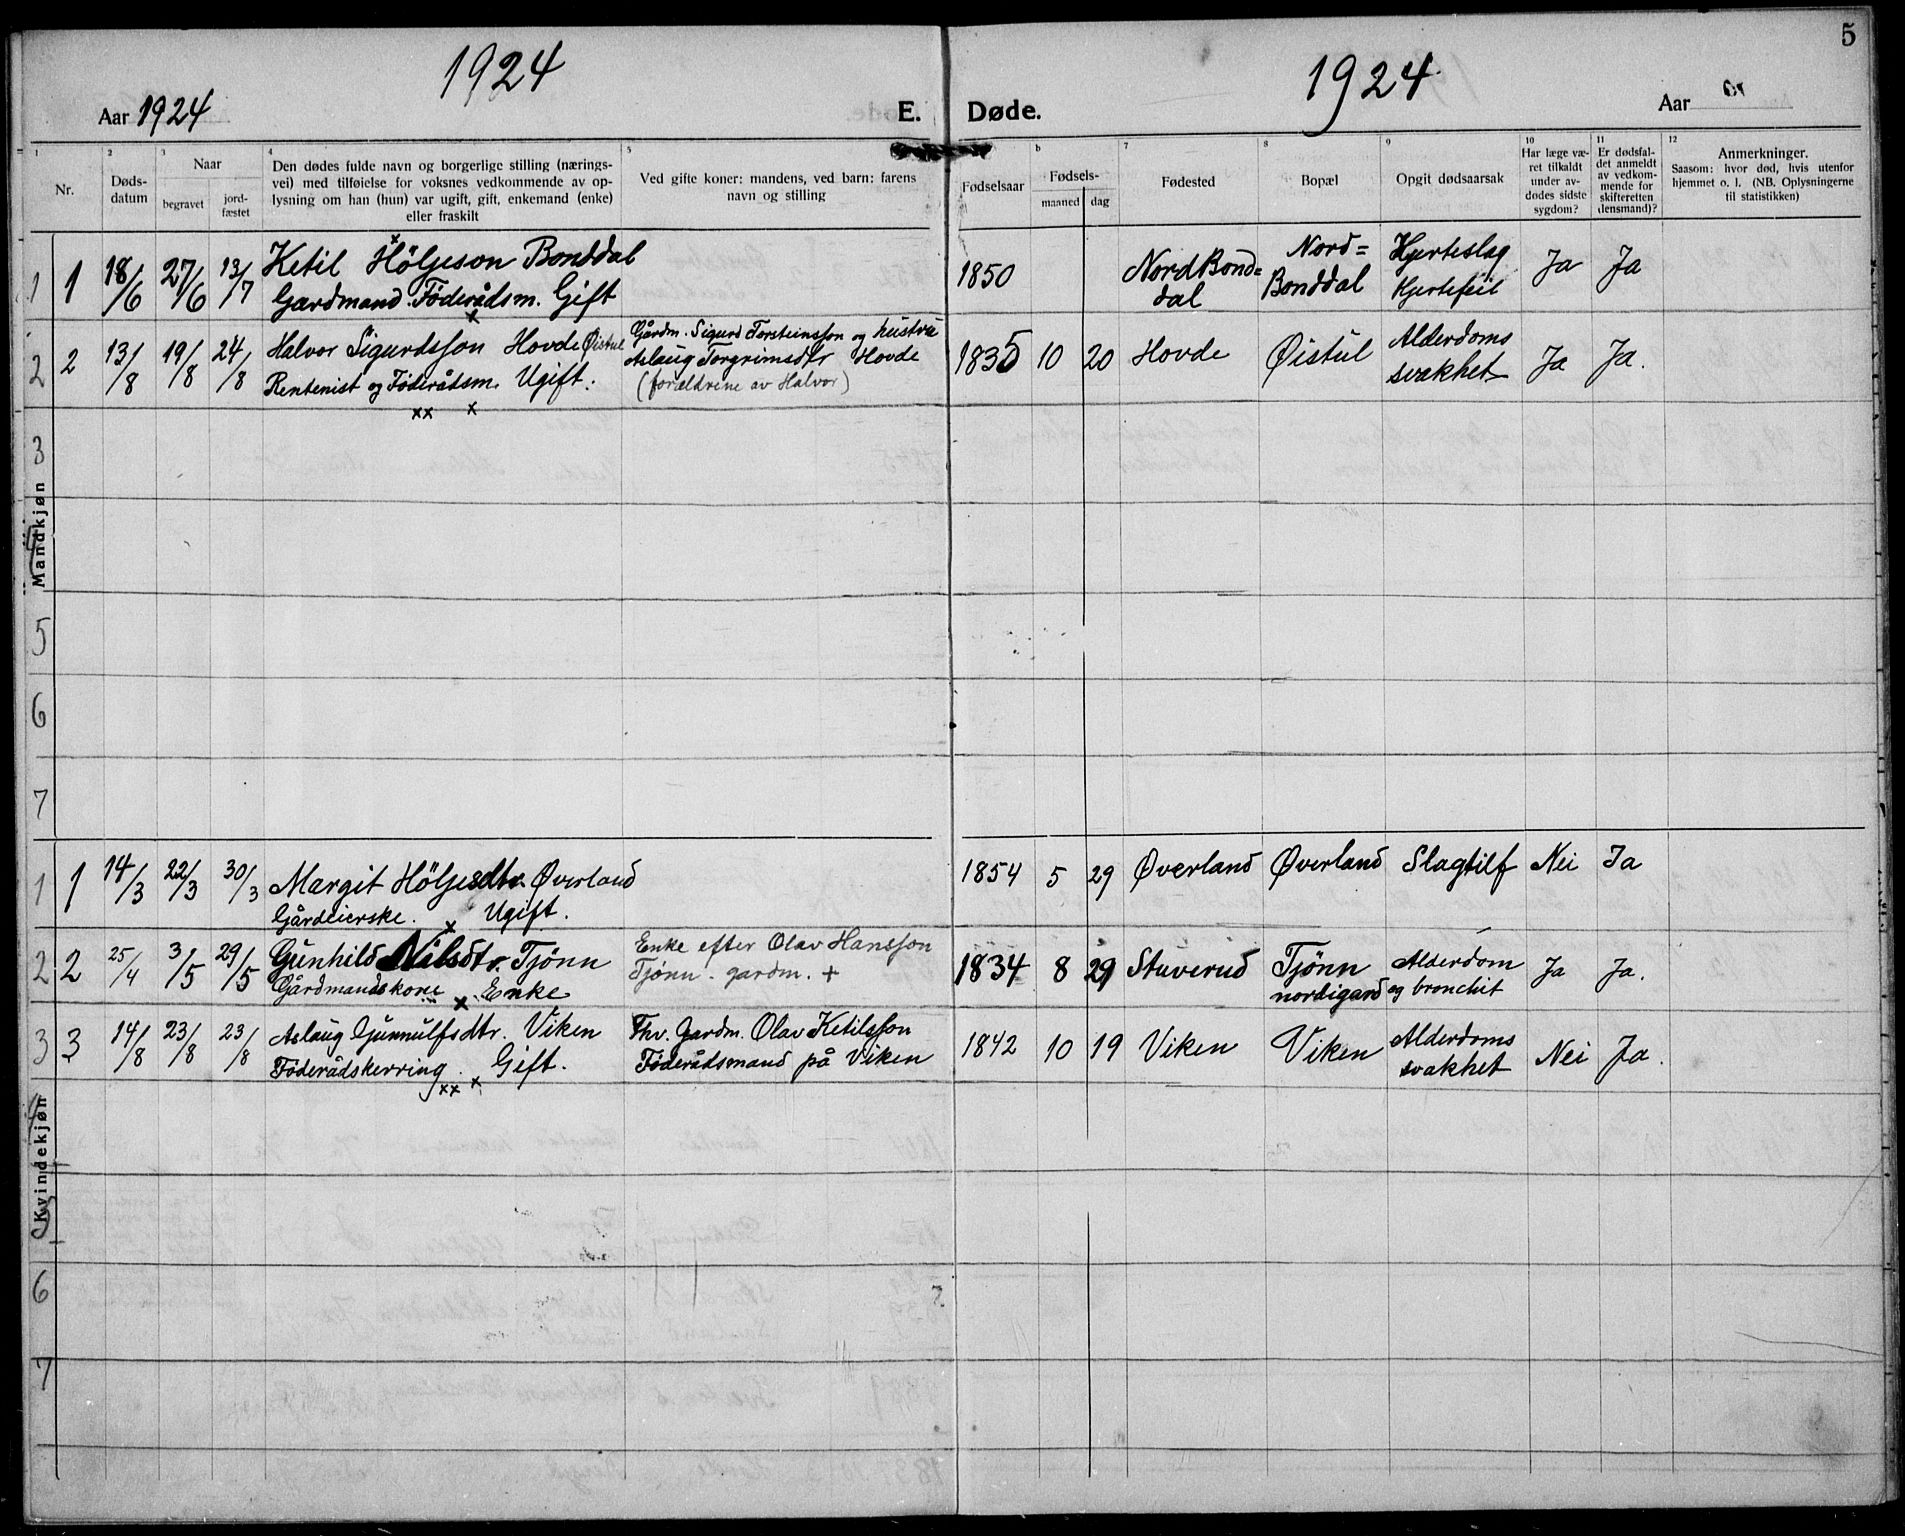 5
1924
1924
Aar 1924
E. Døde.
Aar
1
Nr.
2
Døds-
datum
3
Naar
begravet
jord-
fæstet
4
Den dødes fulde navn og borgerlige stilling (nærings-
vei) med tilføielse for voksnes vedkommende av op-
lysning om han (hun) var ugift, gift, enkemand (enke)
eller fraskilt
5
Ved gifte koner: mandens, ved barn: farens
navn og stilling
Fødselsaar
6
Fødsels-
maaned dag
7
Fødested
8
Bopæl
9
Opgit dødsaarsak
10
Har læge væ-
ret tilkaldt
under av-
dødes sidste
sygdom?
11
Er dødsfal-
det anmeldt
av vedkom-
mende for
skifteretten
(lensmand)?
12
Anmerkninger.
Saasom: hvor død, hvis utenfor
hjemmet o. l. (NB. Oplysningerne
til statistikken)
Mandkjøn
1 1 18/6 27/6 13/7 Ketil Höljeson Bonddal
Gardmand. Föderådsm. Gift
1850 Nord Bond=
dal
Nord=
Bonddal
Hjerteslag
Hjertefeil
Ja Ja
2 2 13/8 19/8 24/8 Halvor Sigurdsson Hovde Øistul
Rentenist og Föderådsm. Ugift.
Gårdm. Sigurd Torsteinsson og hustru
Aslaug Torgrimsdtr Hovde
(forældrene av Halvor)
1835 10 20 Hovde Øistul Alderdoms
svakhet
Ja Ja.
3
4
5
6
7
Kvindekjøn
1 1 14/3 22/3 30/3 Margit Höljesdtr. Øverland
Gårdeierske. Ugift.
1854 5 29 Øverland Øverland Slagtilf Nei Ja
2 2 25/4 3/5 29/5 Gunhild Nilsdtr. Tjönn
Gårdmandskone Enke
Enke efter Olav Hansson
Tjönn. gardm. +
1834 8 29 Stuverud Tjönn
nordigard
Alderdom
og bronchit
Ja Ja.
3 3 14/8 23/8 23/8 Aslaug Gunnulfsdtr. Viken
Föderådskerring. Gift.
Fhv. Gardm. Olav Ketilsson
Föderådsmand på Viken
1842 10 19 Viken Viken Alderdoms
svakhet
Nei Ja.
4
5
6
7